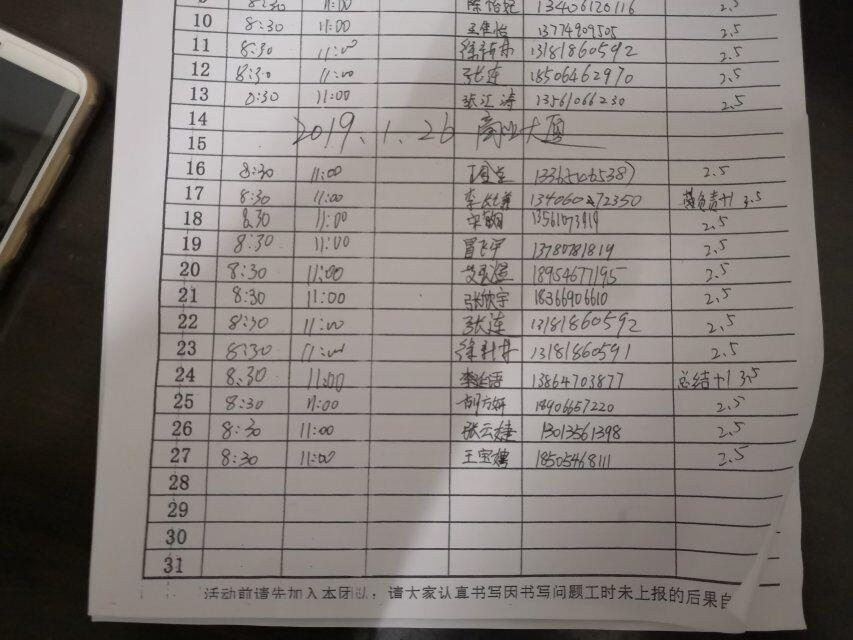 8:30 11:00 陈怡妃 13406120116 2.5
10 8:30 11:00 王佳怡 13774909505 2.5
11 8:30 11:00 13181860592 2.5
12 8:30 11:00 张连 18506462970 2.5
13 0:30 11:00 张汇涛 13561066230 2.5
14
2019.1.26 商业大厦
15
16 8:30 11:00 2.5
17 8:30 11:00 负责+1 3.5
18 8:30 11:00 13561073919 2.5
19 8:30 11:00 13780781819 2.5
20 8:30 11:00 18954677195 2.5
21 8:30 11:00 张欣宇 18366906610 2.5
22 8:30 11:00 张连 13181860592 2.5
23 8:30 11:00 13181860591 2.5
24 8:30 11:00 13864703877 总结+1 3.5
25 8:30 11:00 胡方妍 18906657220 2.5
26 8:30 11:00 张云婕 13013561398 2.5
27 8:30 11:00 王宝嫦 18505468111 2.5
28
29
30
31
活动前请先加入本团队；请大家认真书写因书写问题工时未上报的后果自